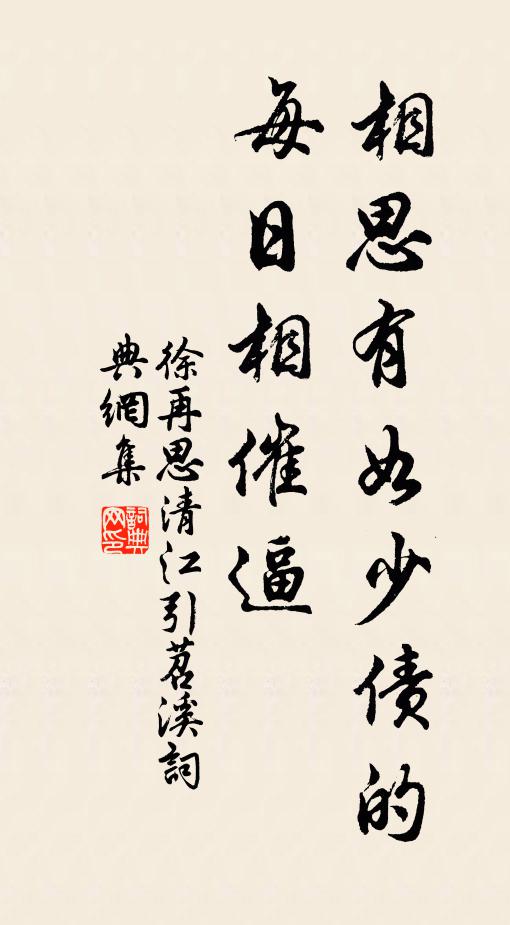 相思有如少债的
每日相催逼
徐再思清江引苕溪詞
典網集
詞典網印